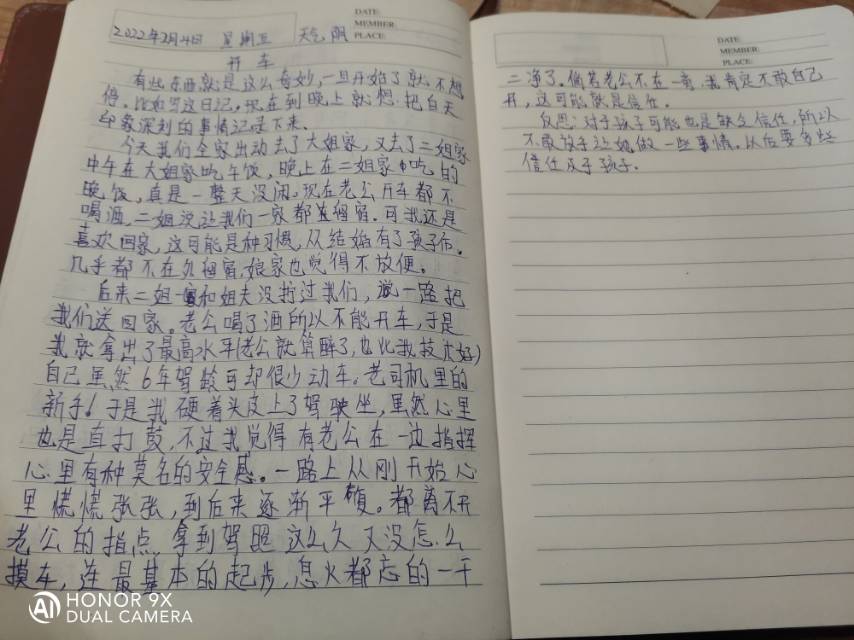 DATE:
MEMBER:
PLACE:
2022年2月4日 星期五 天气 阴
开车
有些东西就是这么奇妙,一旦开始了就不想
停。比如写这日记。现在到晚上就想把白天
印象深刻的事情记录下来。
今天我们全家出动去了大姐家,又去了二姐家
中午在大姐家吃午饭,晚上在二姐家吃的
晚饭,真是一整天没闲。现在老公开车都不
喝酒,二姐说让我们一家都住宿。可我还是
喜欢回家,这可能是种习惯,从结婚有了孩子后。
几乎都不在外留宿,娘家也觉得不放便。
后来二姐和姐夫没拧过我们,说一路把
我们送回家。老公喝了酒所以不能开车,于是
我就拿出了最高水平(老公就算醉了,也比我技术好)
自己虽然6年驾龄可却很少动车。老司机里的
新手!于是我硬着头皮上了驾驶坐,虽然心里
也是直打鼓,不过我觉得有老公在一边指挥
心里有种莫名的安全感。一路上从刚开始心
里慌慌张张,到后来逐渐平复。都离不开
老公的指点,拿到驾照这么久又没怎么
摸车,连最基本的起步,息火都忘的一干
DATE:
MEMBER:
PLACE:
二净了。倘若老公不在一旁,我肯定不敢自己
开,这可能就是信任。
反思:对于孩子可能也是缺乏信任,所以
不敢放手让她做一些事情。以后要多些
信任于孩子。
HONOR 9X
DUAL CAMERA